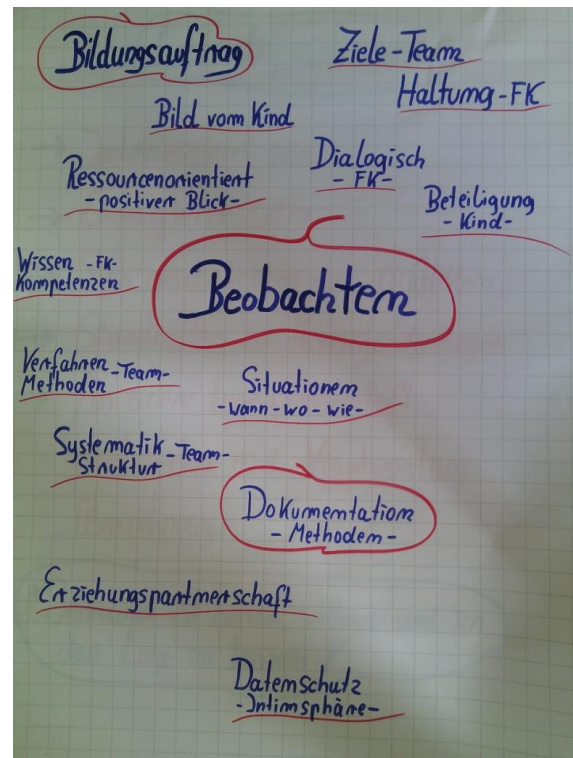 Bildungsauftrag
Ziele-Team
Haltung-FK
Bild vom Kind
Dialogisch
- FK -
Ressourcenorientiert
- positiver Blick -
Beteiligung
- Kind -
Wissen -FK-
Kompetenzen
Beobachten
Verfahren -Team-
Methoden
Situationen
- wann - wo - wie -
Systematik -Team-
Struktur
Dokumentation
- Methoden -
Erziehungspartnerschaft
Datenschutz
- Intimsphäre -